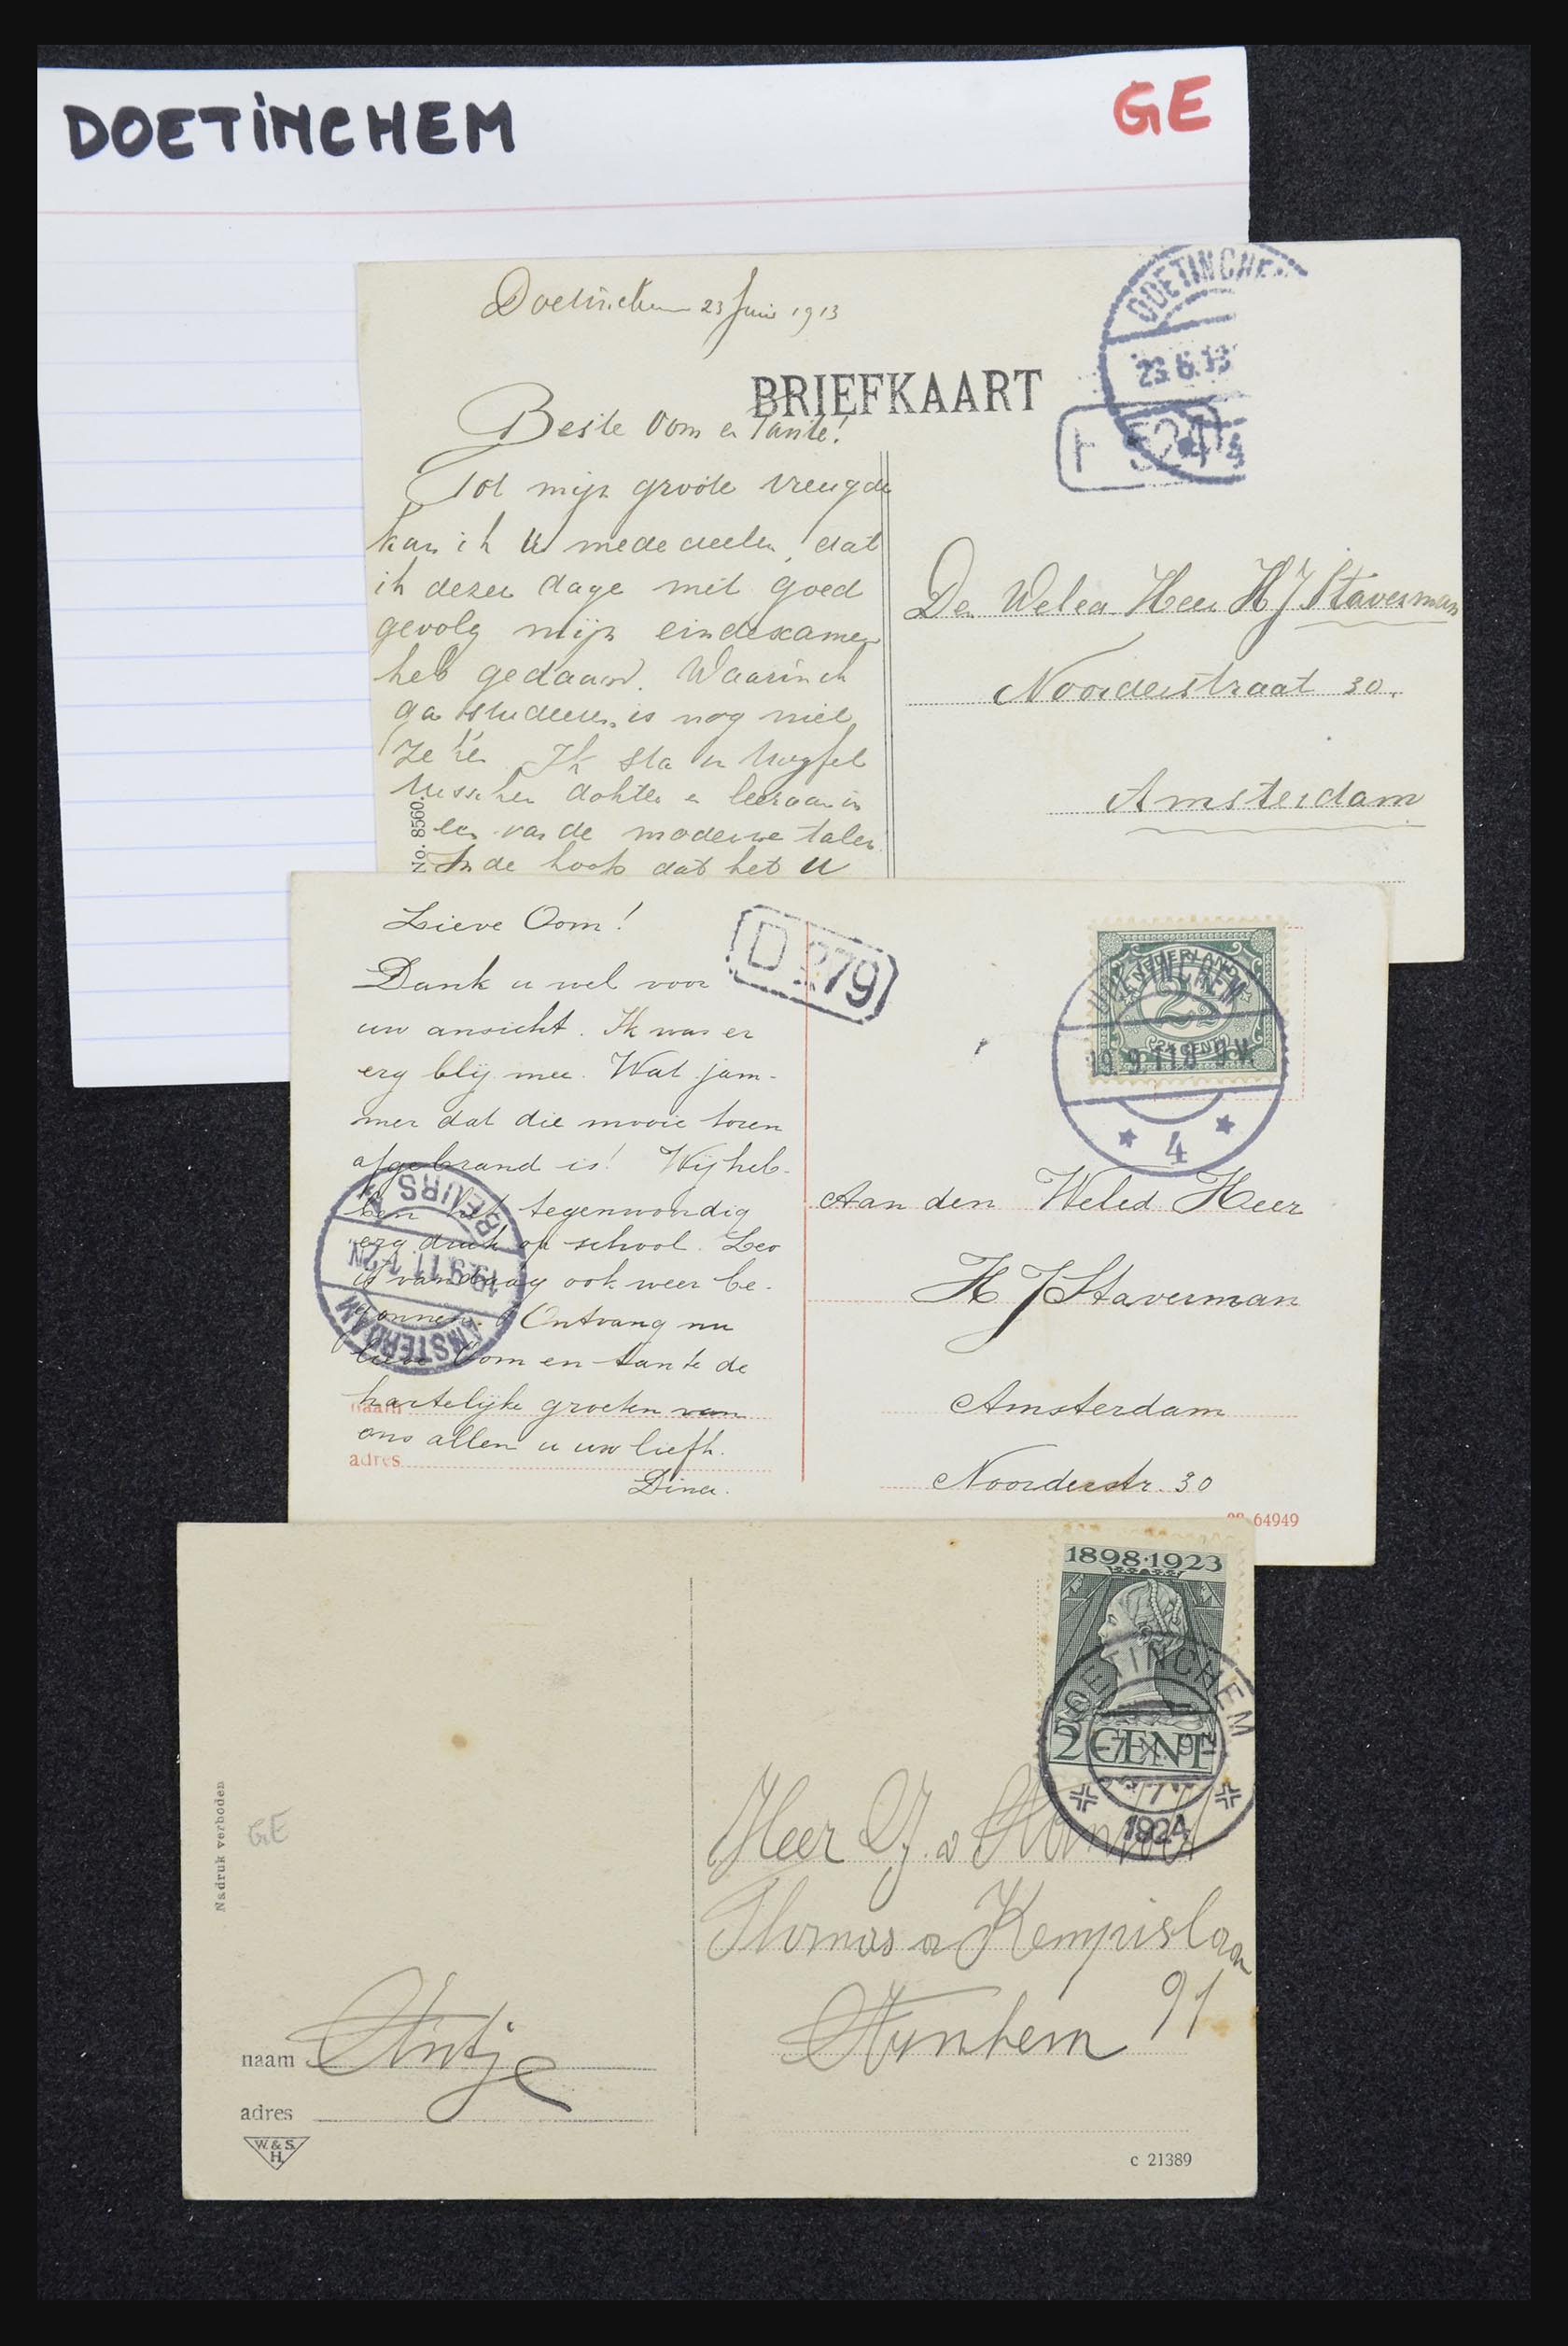 DOETINCHEM GE
Doetinchem 23 Juni 1913
DOETINCHEM
23.6.13
4
BRIEFKAART
Beste Oom en Tante!
Tot mijn groote vreugde
kan ik U mededeelen, dat
ik dezer dage met goed
gevolg mijn eindexamen
heb gedaan. Waarin ik
ga studeeren is nog niet
zeker. Ik sta in twyfel
tusschen dokter en leeraar in
een van de moderne talen
In de hoop dat het U
No. 8560.
Den Weled. Heer H J Staverman
Noorderstraat 30.
Amsterdam
Lieve Oom!
Dank u wel voor
uw ansicht. Ik was er
erg blij mee. Wat jam-
mer dat die mooie toren
afgebrand is! Wij heb-
ben het tegenwoordig
erg druk op school. Leo
is vandaag ook weer be-
gonnen. Ontvang nu
lieve Oom en tante de
hartelijke groeten van
ons allen u uw liefh.
Dina.
naam
adres
D 279
AMSTERDAM
19.9.11 1-2N
BEURS
NEDERLAND
2½
2½ CENT
DOETINCHEM
19.9.11 8-9V
4
Aan den Weled Heer
H J Staverman
Amsterdam
Noorderstr. 30
64949
1898·1923
2 CENT
DOETINCHEM
1924
Heer
Thomas a Kempislaan
91
Arnhem
Nadruk verboden
GE
naam Antje
adres
W. & S.
H.
c 21389